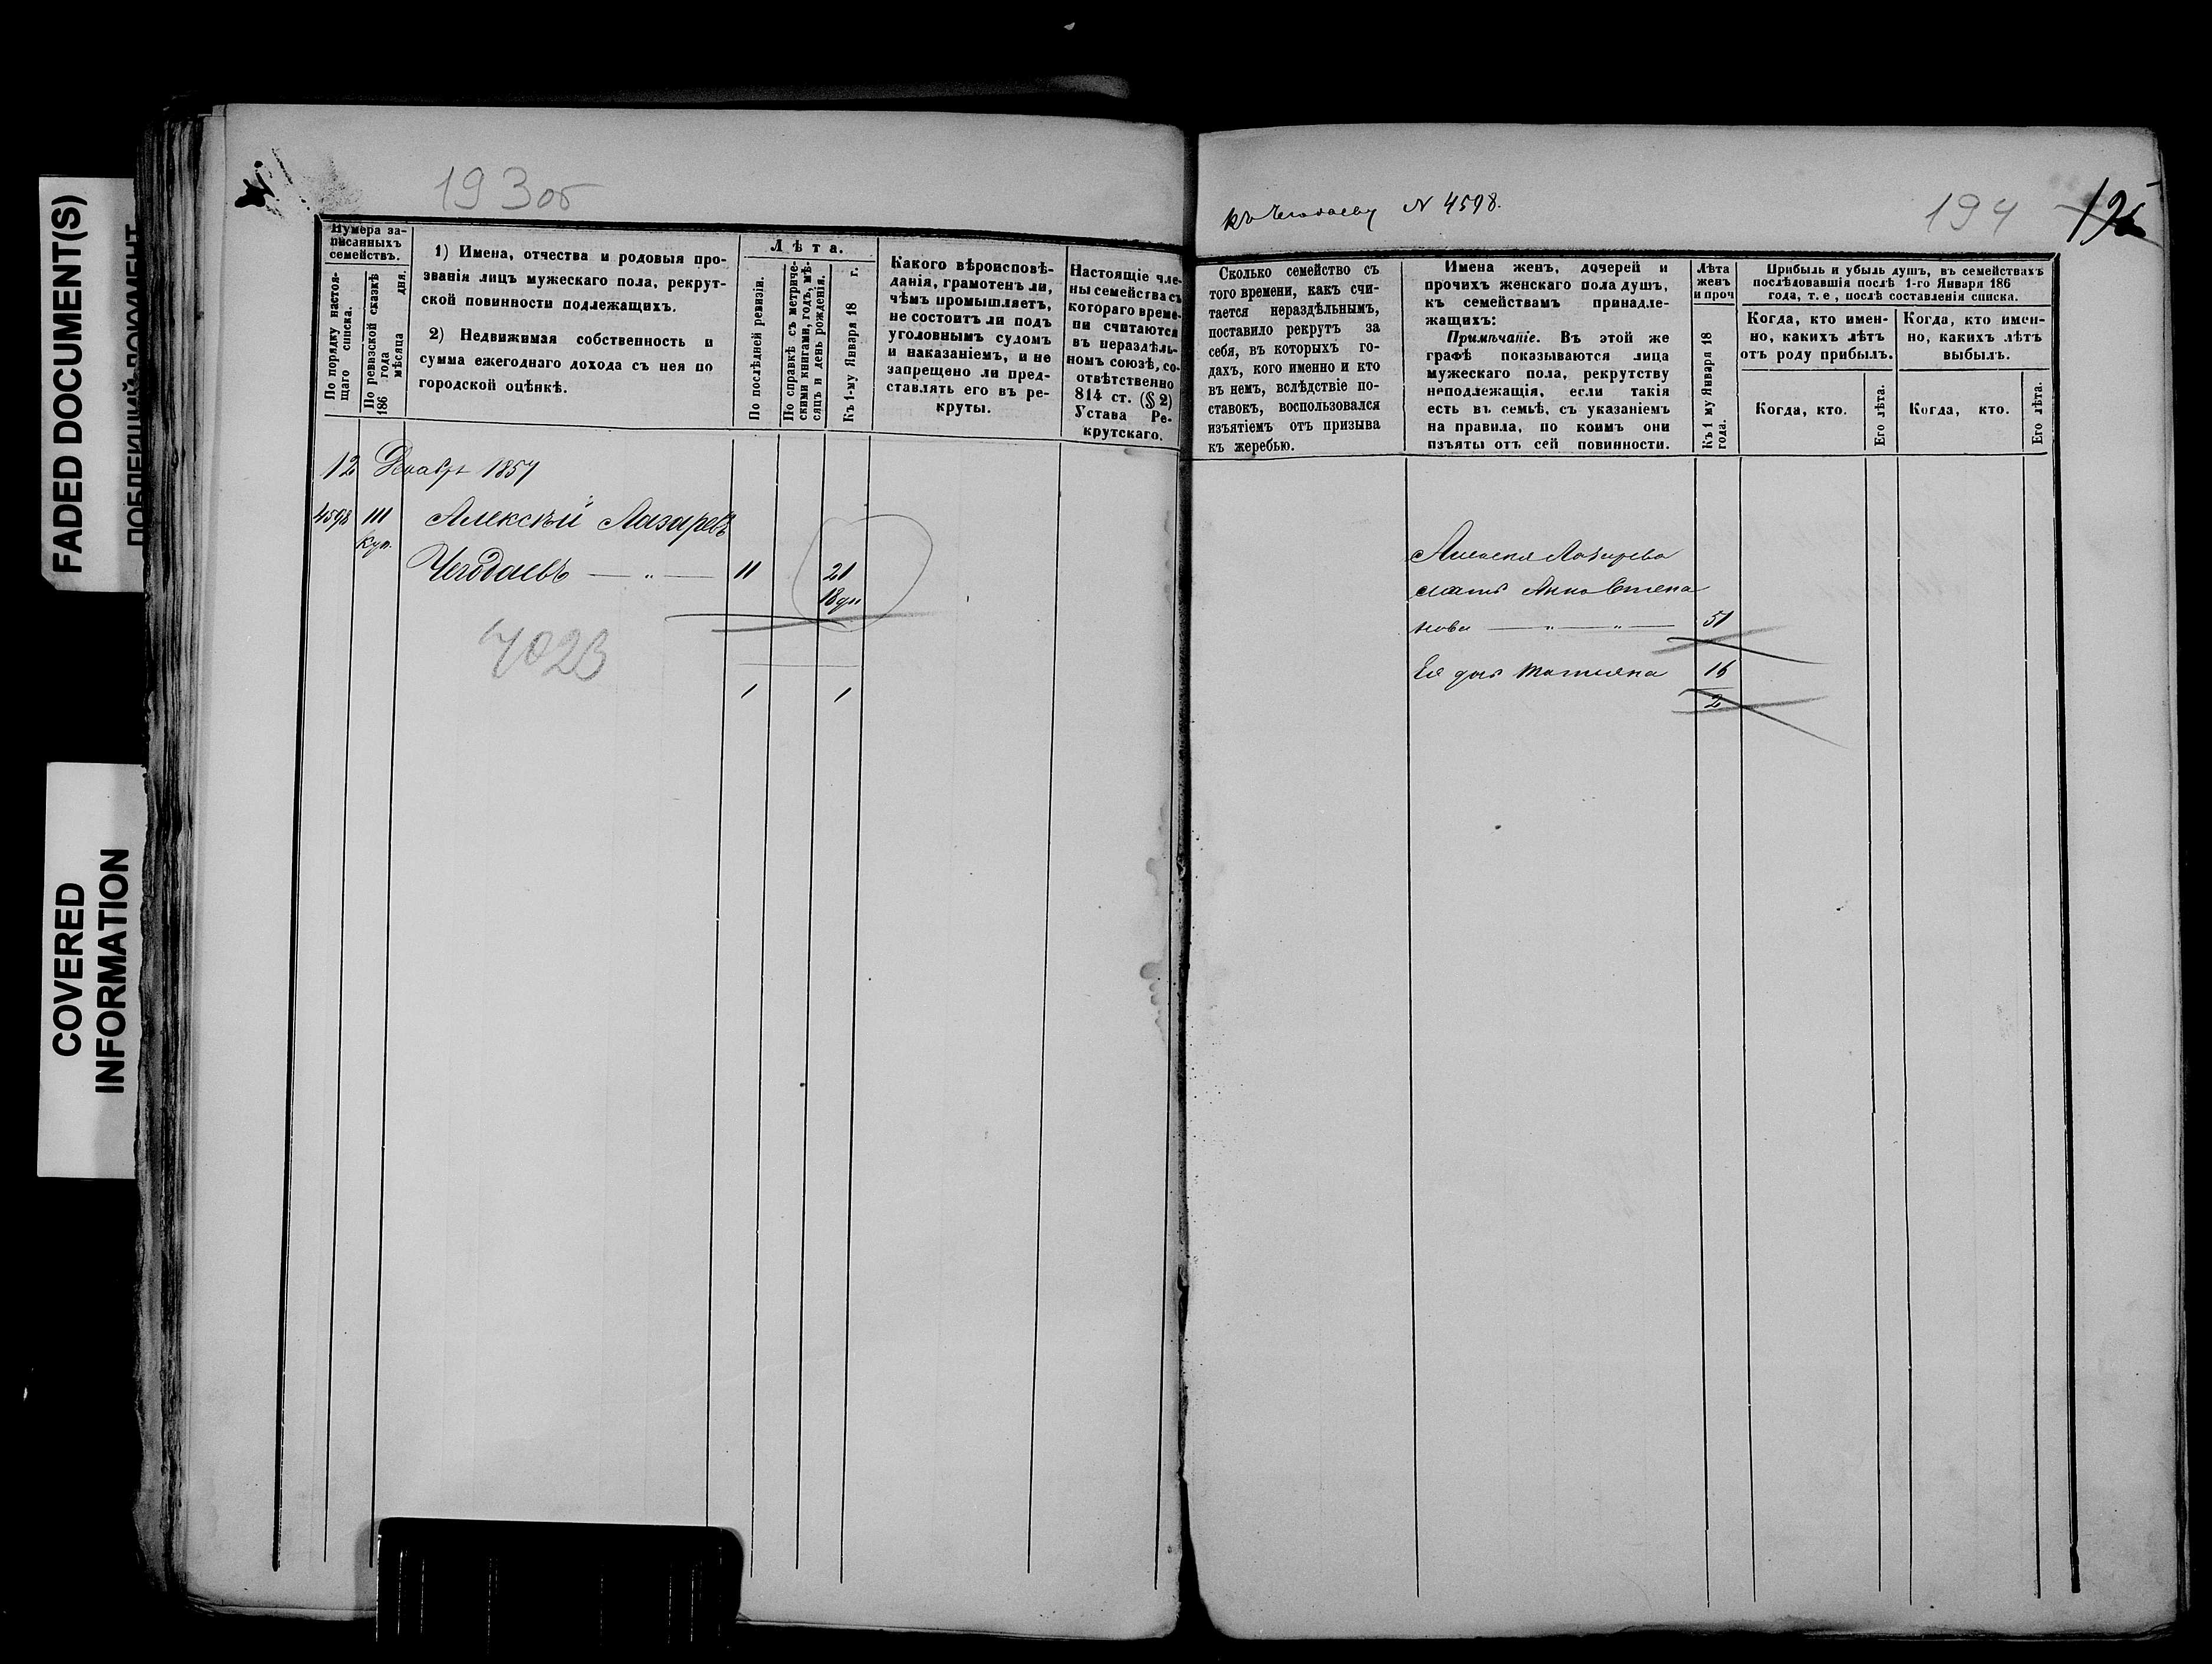 FADED DOCUMENT(S)
COVERED
INFORMATION
193об
Нумера записанныхъ семействъ.
По порядку настоящаго списка.
По ревизской сказкѣ 186 года мѣсяца дня.
1) Имена, отчества и родовыя прозванія лицъ мужескаго пола, рекрутской повинности подлежащихъ.
2) Недвижимая собственность и сумма ежегоднаго дохода съ нея по городской оцѣнкѣ.
Лѣта.
По послѣдней ревизіи.
По справкѣ съ метрическими книгами, годъ, мѣсяцъ и день рожденія.
Къ 1-му Января 18 г.
Какого вѣроисповѣданія, грамотенъ ли, чѣмъ промышляетъ, не состоитъ ли подъ уголовнымъ судомъ и наказаніемъ, и не запрещено ли представлять его въ рекруты.
Настоящіе члены семейства съ котораго времени считаются въ нераздѣльномъ союзѣ, соотвѣтственно 814 ст. (§ 2) Устава Рекрутскаго.
12 Декабря 1857
4598 111 Алексѣй Лазаревъ
куп.
Чегодаевъ — „ — 11 21
18 дн
7023
1 1
къ Чегодаеву № 4598.
194
Сколько семейство съ того времени, какъ считается нераздѣльнымъ, поставило рекрутъ за себя, въ которыхъ годахъ, кого именно и кто въ немъ, вслѣдствіе поставокъ, воспользовался изъятіемъ отъ призыва къ жеребью.
Имена женъ, дочерей и прочихъ женскаго пола душъ, къ семействамъ принадлежащихъ:
Примѣчаніе. Въ этой же графѣ показываются лица мужескаго пола, рекрутству неподлежащія, если такія есть въ семьѣ, съ указаніемъ на правила, по коимъ они изъяты отъ сей повинности.
Лѣта женъ и проч
Къ 1 му Января 18 года.
Прибыль и убыль душъ, въ семействахъ послѣдовавшія послѣ 1-го Января 186 года, т. е, послѣ составленія списка.
Когда, кто именно, какихъ лѣтъ отъ роду прибылъ.
Когда, кто именно, какихъ лѣтъ выбылъ.
Когда, кто.
Его лѣта.
Когда, кто.
Его лѣта.
Алексѣя Лазарева
мать Анна Степа
нова — „ — „ — 51
Ея дочь Татьяна 16
2